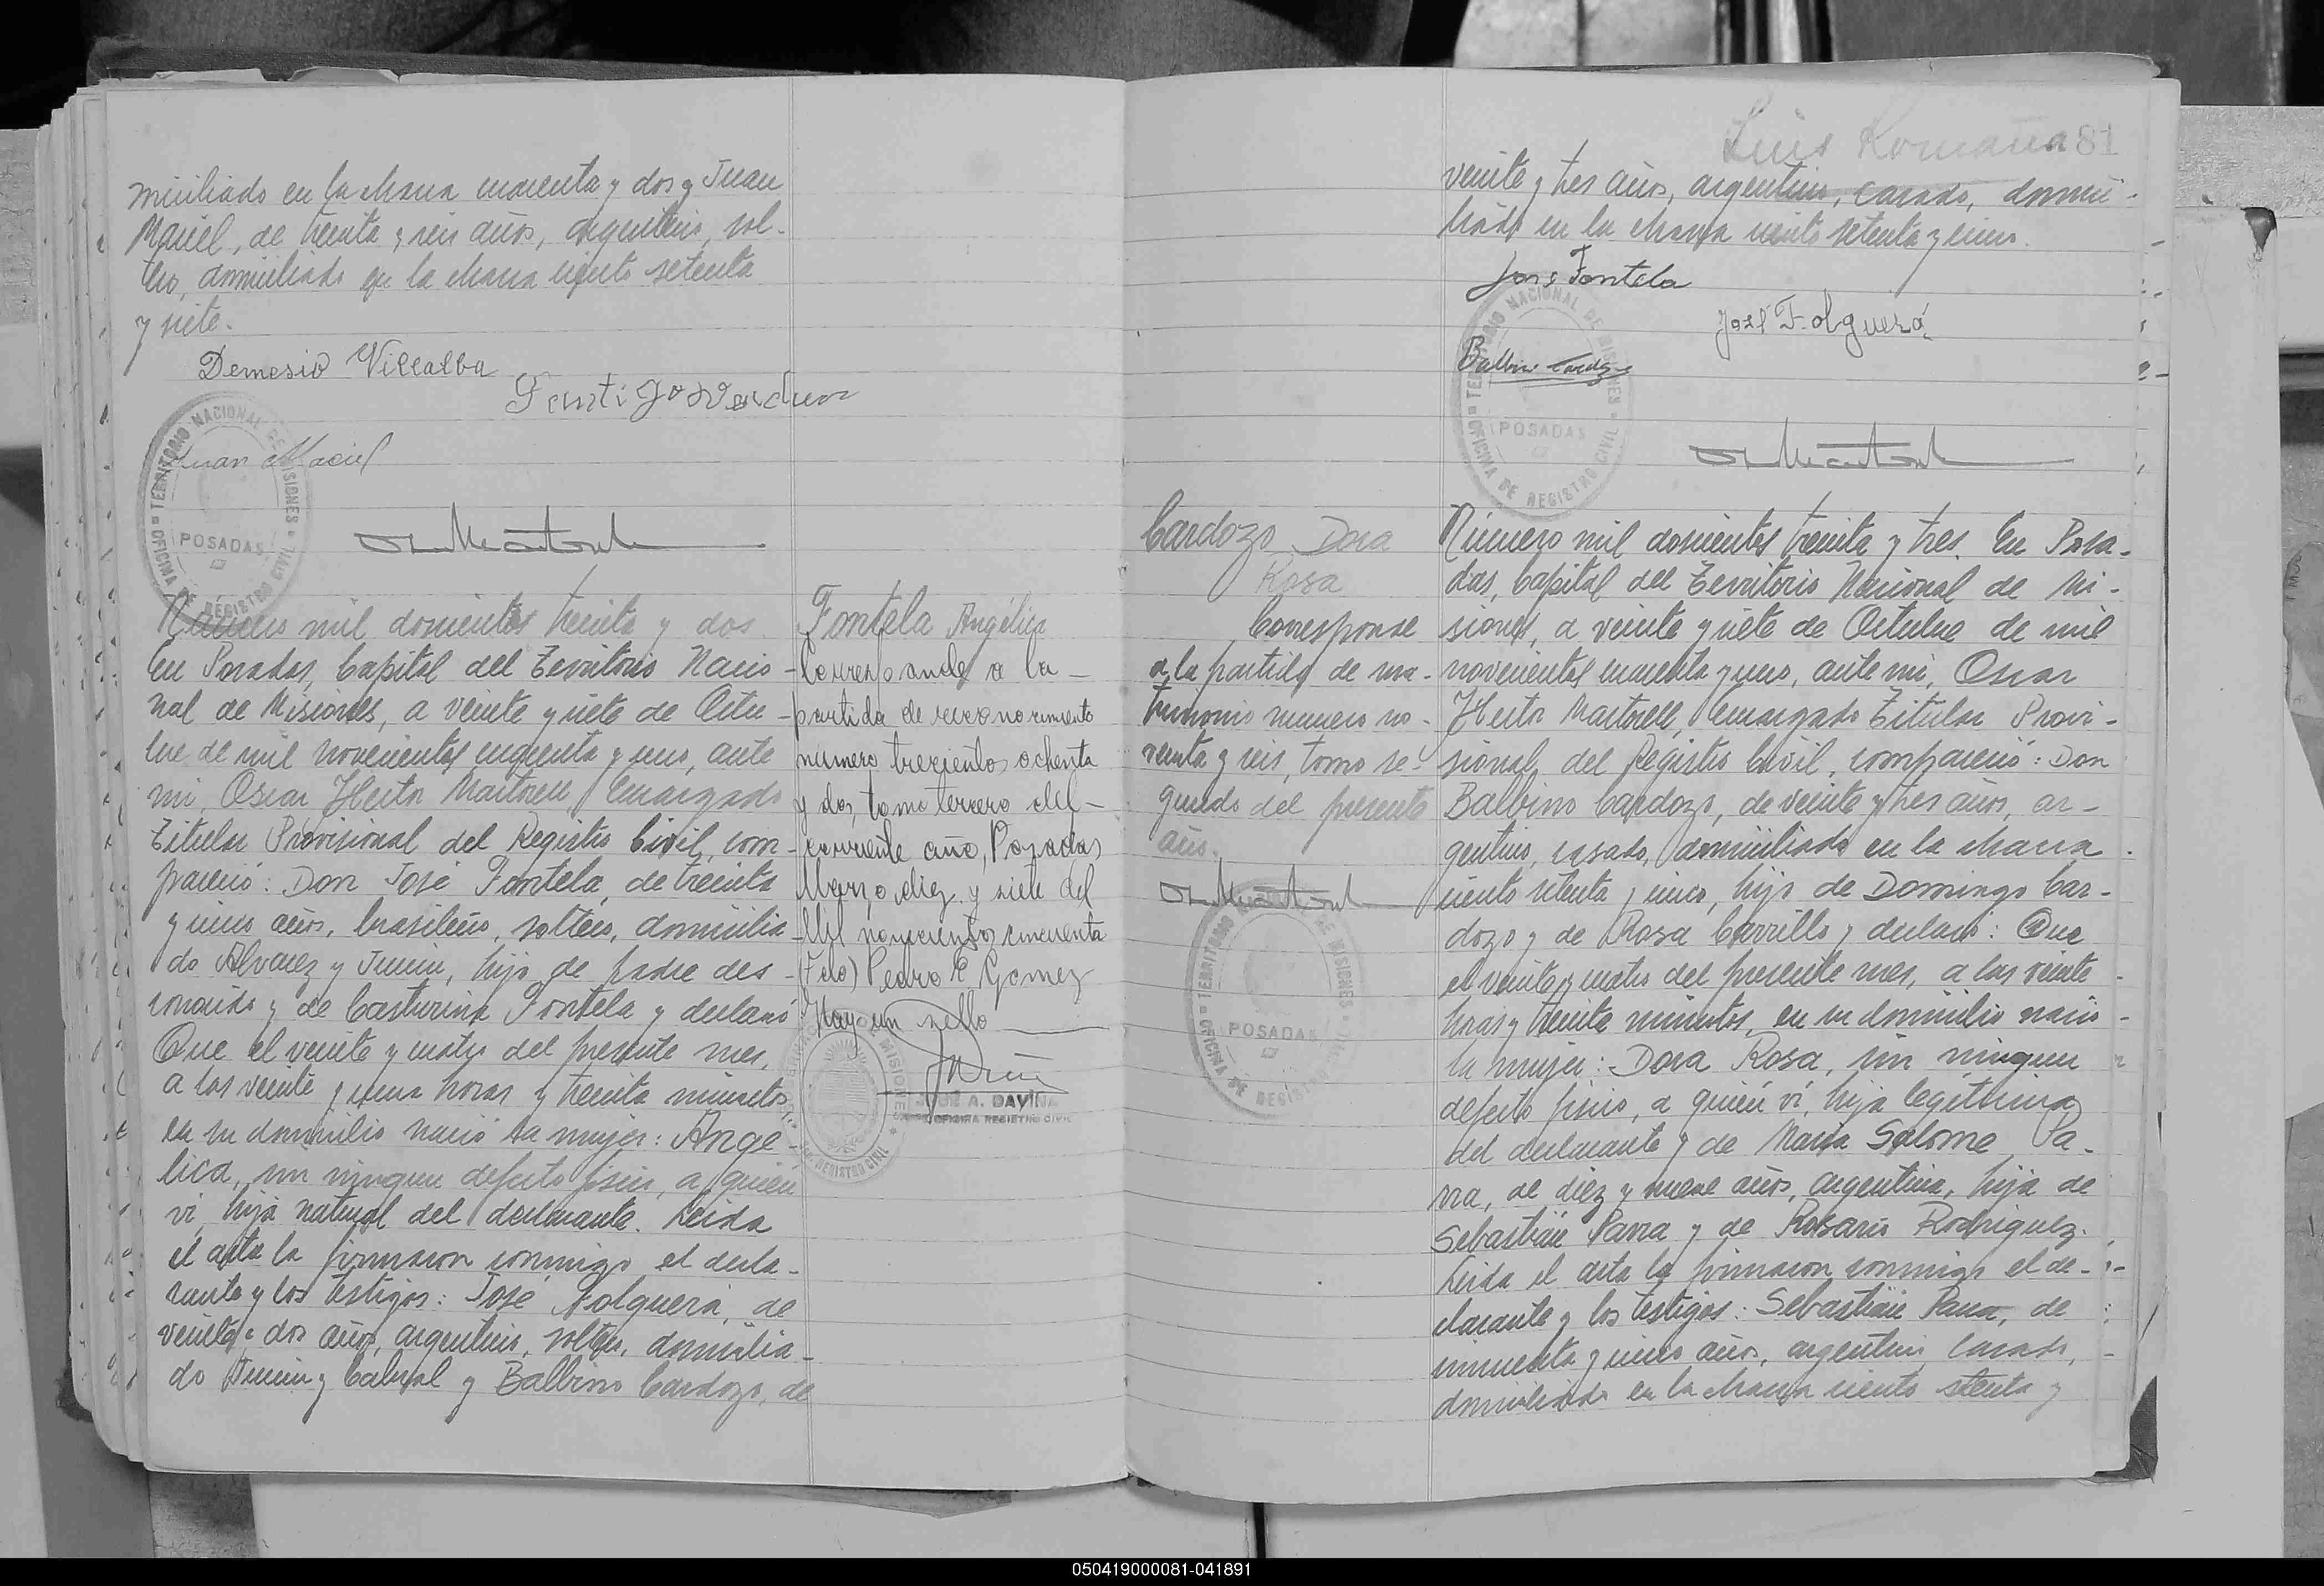 miciliado en la chacra cuarenta y dos y Juan
Maciel, de treinta y seis años, argentino, sol-
tero, domiciliado en la chacra ciento setenta
y siete.
Demesio Villalba
Santiago Verdun
Juan Maciel
TERRITORIO NACIONAL DE MISIONES
POSADAS
OFICINA DE REGISTRO CIVIL
Número mil doscientos treinta y dos
En Posadas, Capital del Territorio Nacio-
nal de Misiones, a veinte y siete de Octu-
bre de mil novecientos cuarenta y uno, ante
mi, Oscar Hector Martorell, Encargado
Titular Provisional del Registro Civil, com-
pareció: Don José Fontela, de treinta
y cinco años, brasileño, soltero, domicilia-
do Alvarez y Junin, hijo de padre des-
conocido y de Casturina Fontela y declaró:
Que el veinte y cuatro del presente mes,
a las veinte y una horas y treinta minutos,
en su domicilio nació la mujer: Ange-
lica, sin ningun defecto fisico, a quien
vi, hija natural del declarante. Leida
el acta la firmaron conmigo el decla-
rante y los testigos: José Folguera, de
veinte y dos años, argentino, soltero, domicilia-
do Junin y Cabral y Balbino Cardozo, de
Fontela Angélica
Corresponde a la
partida de reconocimiento
numero trescientos ochenta
y dos, tomo tercero del
corriente año, Posadas
Marzo diez y siete del
Mil novecientos cincuenta
(Fdo) Pedro E. Gomez
Hay un sello
JOSE A. DAVIÑA
OFICINA REGISTRO CIVIL
Luis Romaña 81
veinte y tres años, argentino, casado, domici-
liado en la chacra ciento setenta y cinco.
José Fontela
José Folguera
Balbino Cardozo
TERRITORIO NACIONAL DE MISIONES
POSADAS
OFICINA DE REGISTRO CIVIL
Cardozo Dora
Rosa
Corresponde
a la partida de ma-
trimonio numero no-
venta y seis, tomo se-
gundo del presente
año.
TERRITORIO DE MISIONES
POSADAS
OFICINA DE REGISTRO CIVIL
Número mil doscientos treinta y tres. En Posa-
das, Capital del Territorio Nacional de Mi-
siones, a veinte y siete de Octubre de mil
novecientos cuarenta y uno, ante mi, Oscar
Hector Martorell, Encargado Titular Provi-
sional del Registro Civil, compareció: Don
Balbino Cardozo, de veinte y tres años, ar-
gentino, casado, domiciliado en la chacra
ciento setenta y cinco, hijo de Domingo Car-
dozo y de Rosa Carrillo y declaró: Que
el veinte y cuatro del presente mes, a las veinte
horas y treinta minutos, en su domicilio nació
la mujer: Dora Rosa, sin ningun
defecto fisico, a quién vi, hija legitima
del declarante y de Maria Salome Pa-
rra, de diez y nueve años, argentina, hija de
Sebastián Parra y de Rosario Rodriguez.
Leida el acta la firmaron conmigo el de-
clarante y los testigos: Sebastián Parra, de
cincuenta y cinco años, argentino, casado,
domiciliado en la chacra ciento setenta y
050419000081-041891